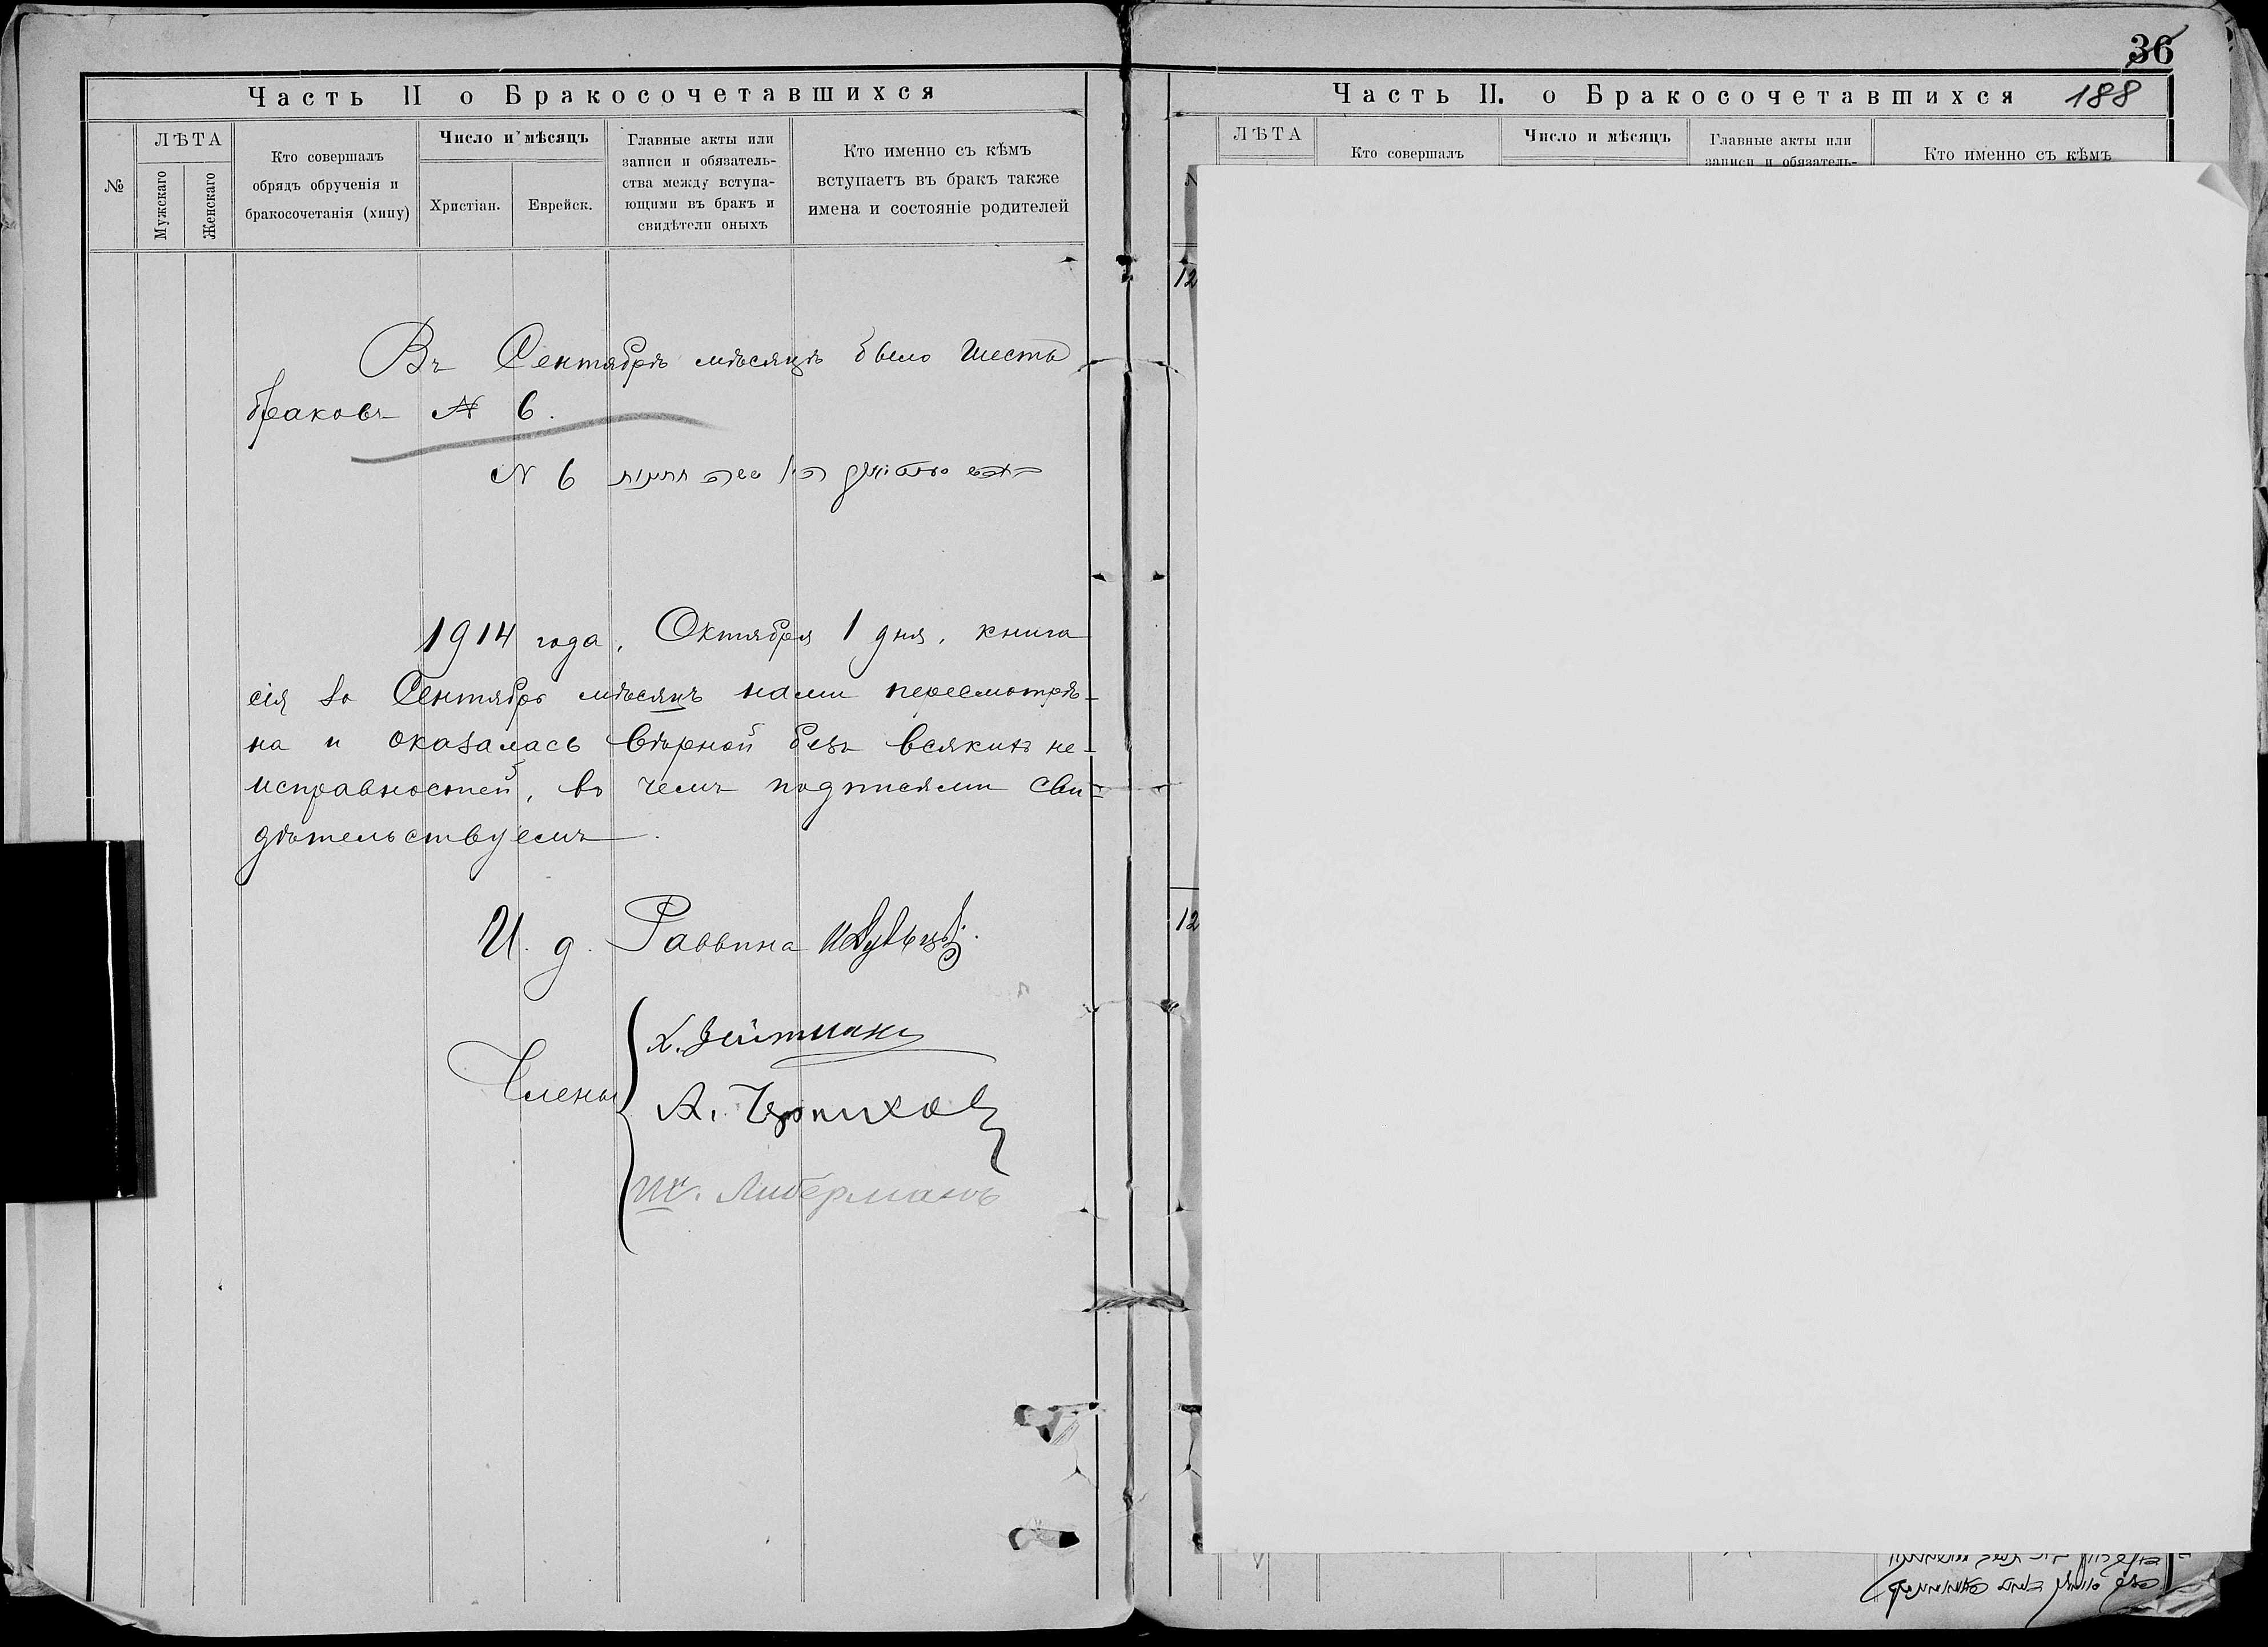 Часть II о Бракосочетавшихся
№
ЛѢТА
Мужскаго
Женскаго
Кто совершалъ
обрядъ обрученія и
бракосочетанія (хипу)
Число и мѣсяцъ
Христіан.
Еврейск.
Главные акты или
записи и обязатель-
ства между вступа-
ющими въ бракъ и
свидѣтели оныхъ
Кто именно съ кѣмъ
вступаетъ въ бракъ также
имена и состояніе родителей
Въ Сентябрѣ мѣсяцѣ было шесть
браковъ № 6.
N 6
1914 года, Октября 1 дня, книга
сія за Сентябрь мѣсяцъ нами пересмотрѣ-
на и оказалась вѣрной безъ всякихъ не-
исправностей, въ чемъ подписями сви-
дѣтельствуемъ.
И. д. Раввина
Члены
Х. Вейтманъ
А. Черниховъ
Ш. Либерманъ
36
Часть II. о Бракосочетавшихся 188
ЛѢТА
Кто совершалъ
Число и мѣсяцъ
Главные акты или
записи и обязатель-
Кто именно съ кѣмъ
12
12